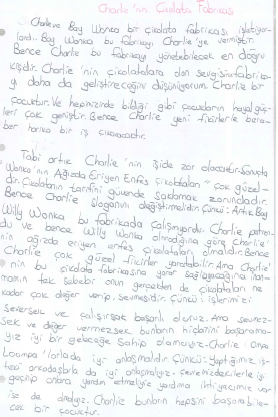 Charlie'nin Çikolata Fabrikası
Charlie ve Bay Wonka bir çikolata fabrikası işletiyor-
lardı. Bay Wonka bu fabrikayı Charlie'ye vermişti.
Bence Charlie bu fabrikayı yönetebilecek en doğru
kişidir. Charlie'nin çikolatalara olan sevgisinin fabrika-
yı daha da geliştireceğini düşünüyorum. Charlie bir
çocuktur. Ve hepinizinde bildiği gibi çocukların hayal güç-
leri çok geniştir. Bence Charlie yeni fikirlerle bera-
ber harika bir iş çıkaracaktır.
Tabi artık Charlie'nin işide zor olacaktır. Sonuçta
Wonka'nın Ağızda Eriyen Enfes Çikolataları" çok güzel-
dir. Çikolataların tarifini güvende saklamak zorundadır.
Bence Charlie sloganını değiştirmelidir. Çünkü: Artık Bay
Willy Wonka bu fabrikada çalışmıyordu. Charlie patron-
du ve bence Willy Wonka olmadığına göre Charlie'
nin ağızda eriyen enfes çikolataları olmalıdır. Bence
Charlie çok güzel fikirler yaratabilir. Ama Charlie'
nin bu çikolata fabrikasına yarar sağlayacağına inan-
mamın tek sebebi onun gerçekten de çikolataları ne
kadar çok değer verip, sevmesidir. Çünkü: işlerimizi
seversek ve çalışırsak başarılı oluruz. Ama sevmez-
sek ve değer vermezsek bunların hiçbirini başarama-
yız iyi bir geleceğe sahip olamayız. Charlie: Oma
Loompa'larla da iyi anlaşmalıdır. Çünkü: Yaptığımız iş-
teki arkadaşlarla da iyi anlaşmalıyız. Çevremizdekilerle iyi
geçinip onlara yardım etmeliyiz yardıma ihtiyacımız var-
ise de almalıyız. Charlie bunların hepsini başarabile-
cek bir çocuktur.